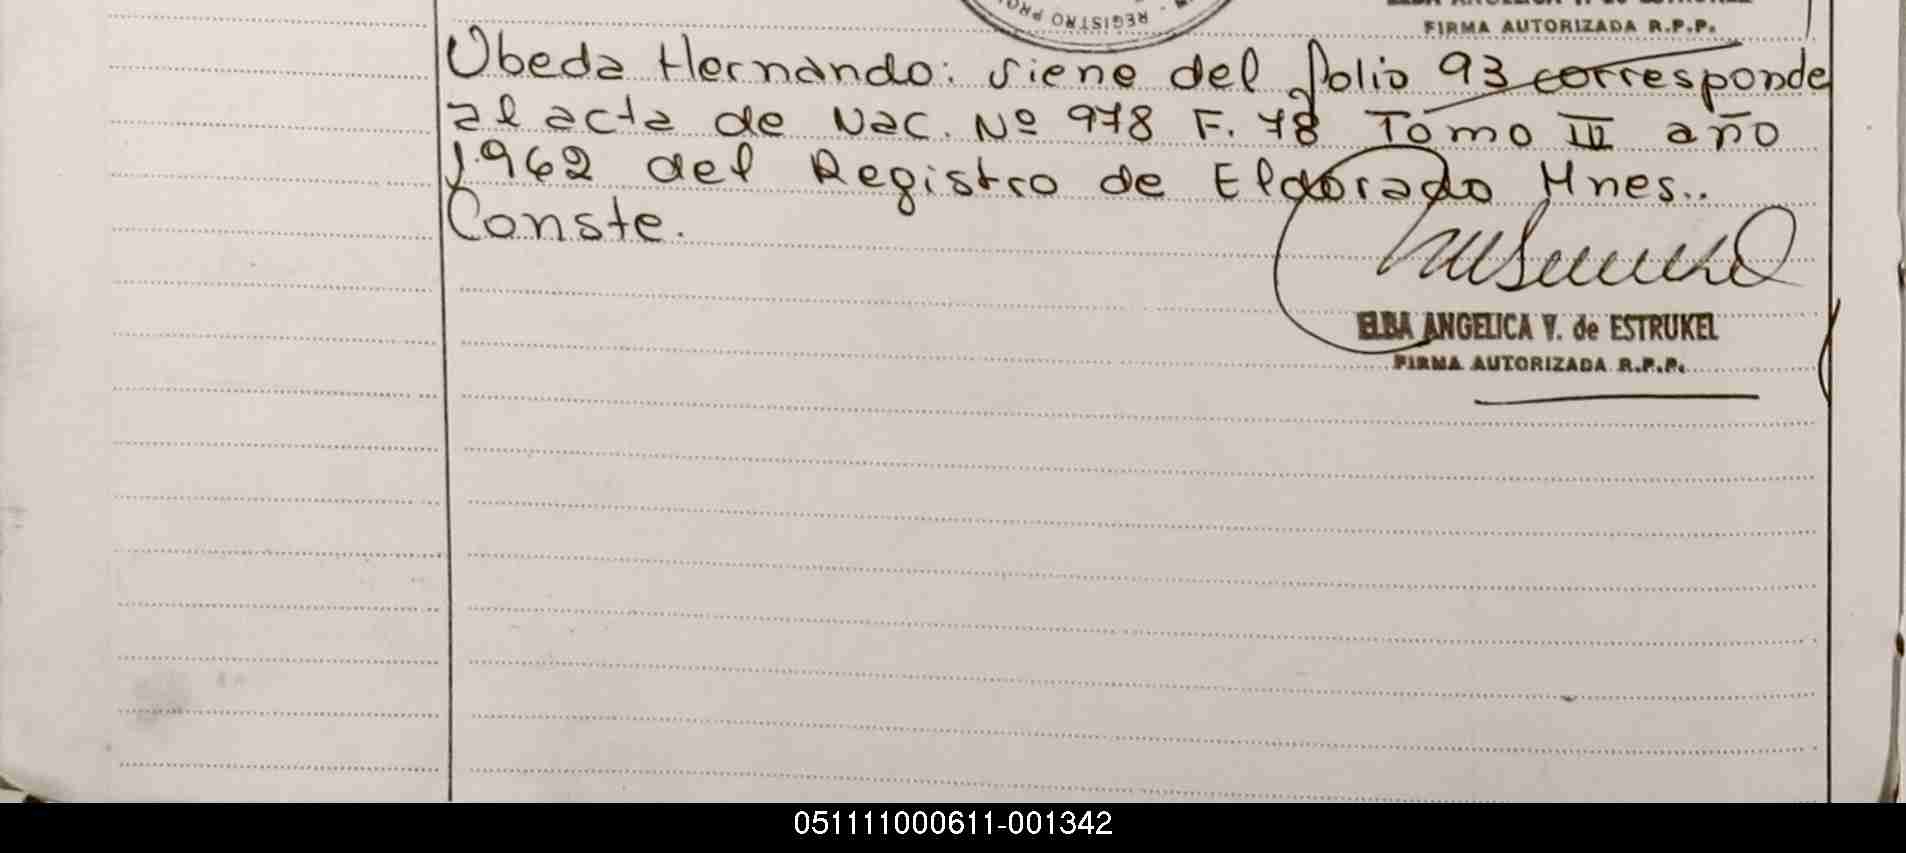 REGISTRO PRO
FIRMA AUTORIZADA R.P.P.
Ubeda Hernando: viene del folio 93 corresponde
al acta de Nac. Nº 978 F. 78 Tomo III año
1962 del Registro de Eldorado Mnes..
Conste.
ELBA ANGELICA V. de ESTRUKEL
FIRMA AUTORIZADA R.P.P.
051111000611-001342